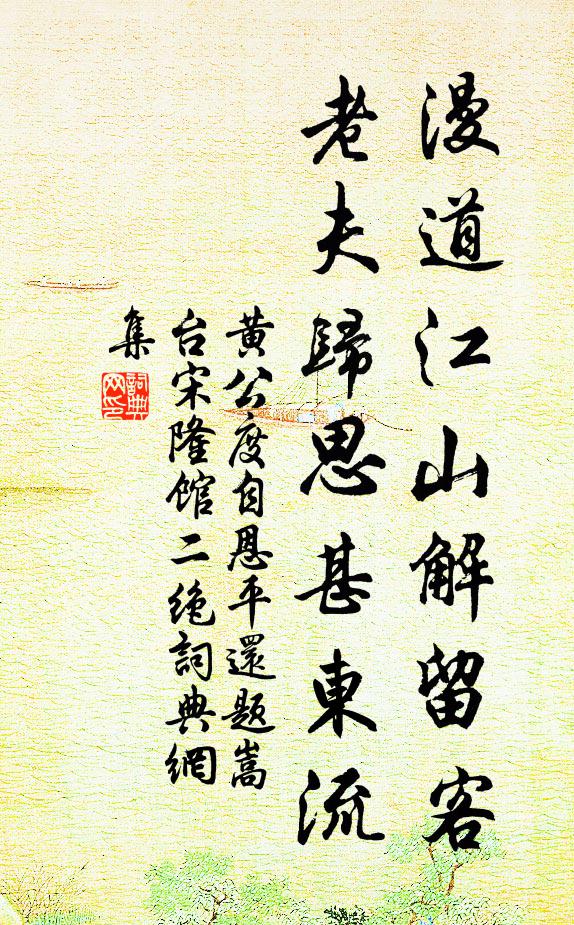 漫道江山解留客
老夫歸思甚東流
黄公度自恩平還題嵩
台宋隆馆二绝詞典網
集
詞典網印